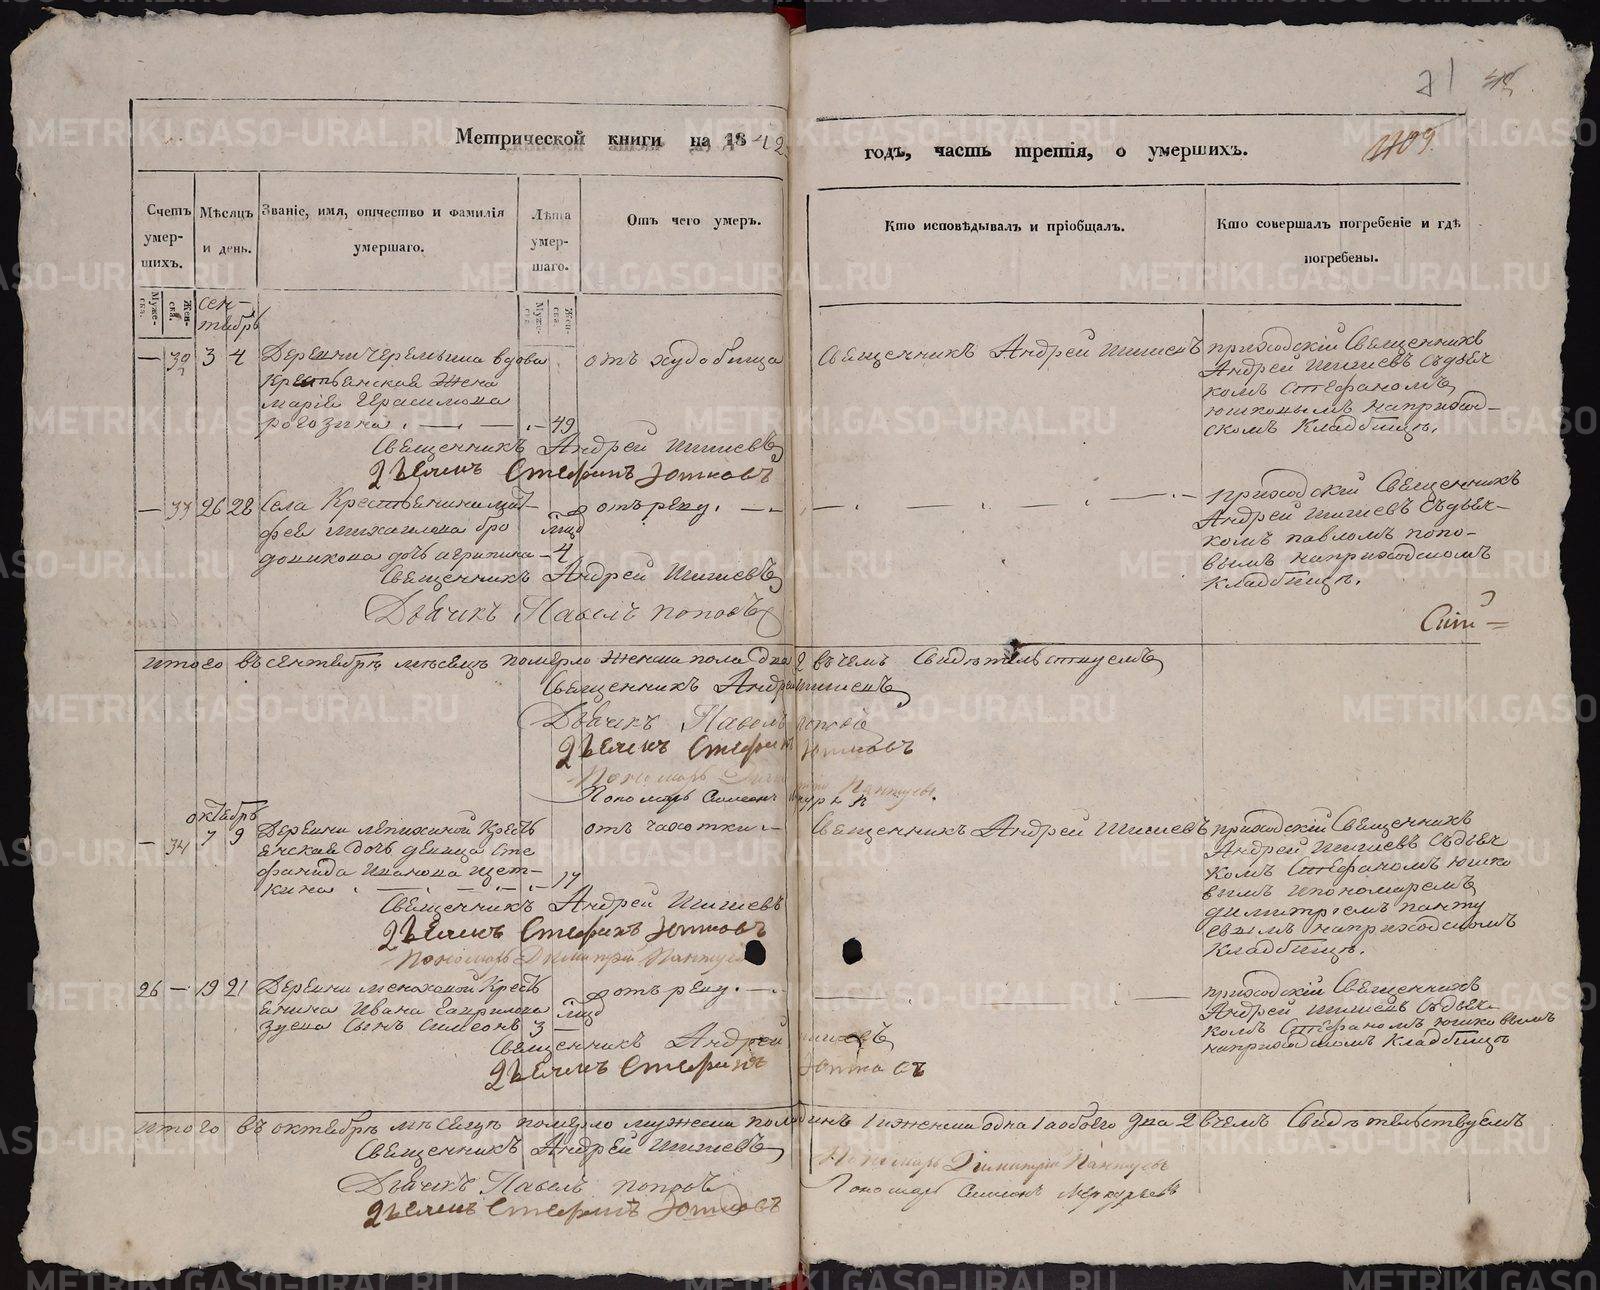 Метрической книги на 1842
годъ, часть третія, о умершихъ.
1109.
Счетъ умер-шихъ.
Мѣсяцъ и день.
Званіе, имя, отчество и фамилія умершаго.
Лѣта умер-шаго.
Отъ чего умеръ.
Кто исповѣдывалъ и пріобщалъ.
Кто совершалъ погребеніе и гдѣ погребены.
Муже-ска.
Жен-ска.
Муже-ска
Жен-ска
сен-
тябрь
— 32 3 4 Деревни вдова
крестьянская жена
марія Герасимова
рогозина — 49
отъ худобища
Священникъ Андрей Шишевъ
приходскій Священникъ
Андрей Шишевъ съдьяч
комъ Стефаномъ
юшковымъ наприход-
скомъ кладбищѣ.
Священникъ Андрей Шишевъ
Дьячекъ Стефанъ Юшковъ
— 33 26 28 Села Крестьянина мат-
фея михаилова
дочь агрипина — 4
отъ резу.
приходскій Священникъ
Андрей Шишевъ съдьяч-
комъ павломъ попо-
вымъ наприходскомъ
кладбищѣ.
Священникъ Андрей Шишевъ
Дьячикъ Павелъ поповъ
итого въ сентябрѣ мѣсяцѣ померло женска пола два 2 въчемъ Свидѣтельствуемъ
Священникъ Андрей Шишевъ
Дьячикъ Павелъ поповъ
Дьячекъ Стефанъ Юшковъ
Пономарь
Пономарь Симеонъ
октябрь
— 34 7 9 Деревни крестъ
янская дочь девица сте
фанида Иванова щет-
кина — 17
отъ чахотки
Священникъ Андрей Шишевъ
приходскій Священникъ
Андрей Шишевъ съдьяч
комъ Стефаномъ юшко
вымъ ипономаремъ
димитріемъ панту
евымъ наприходскомъ
кладбищѣ.
Священникъ Андрей Шишевъ
Дьячекъ Стефанъ Юшковъ
Пономарь Димитрій Пантуевъ
26 — 19 21 Деревни крестъ
янина Ивана Гаврилова
зуева сынъ Симеонъ 3 —
отъ резу.
приходскій Священникъ
Андрей Шишевъ съдьяч-
комъ Стефаномъ юшковымъ
наприходскомъ кладбищѣ
Священникъ Андрей Шишевъ
Дьячекъ Стефанъ Юшковъ
итого въ октябрѣ мѣсяцѣ померло мужеска пола одинъ 1 иженска одна 1 аобоего два 2 вчемъ Свидѣтельствуемъ
Священникъ Андрей Шишевъ
Дьячикъ Павелъ поповъ
Дьячекъ Стефанъ Юшковъ
Пономарь Димитрій Пантуевъ
Пономарь Симеонъ Меркурьевъ
METRIKI.GASO-URAL.RU